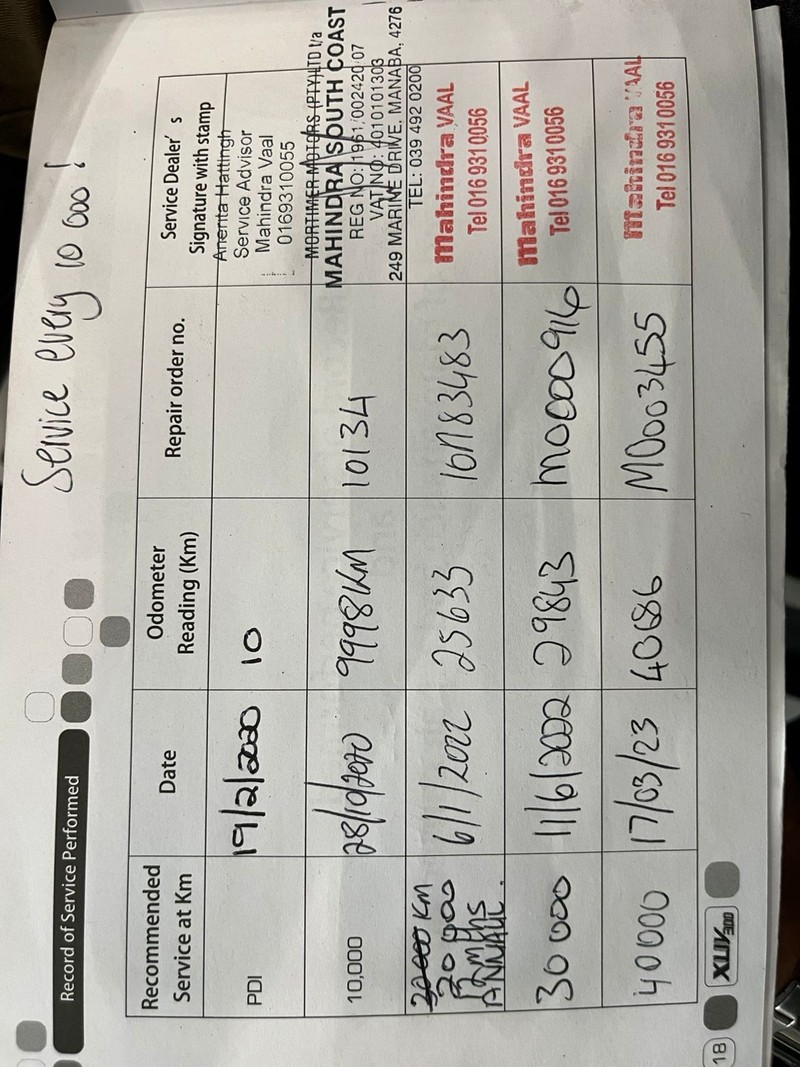 Service every 10 000!
Record of Service Performed
Recommended Service at Km
Date
Odometer Reading (Km)
Repair order no.
Service Dealer's Signature with stamp
PDI
19/2/2020
10
Anenta Hattingh
Service Advisor
Mahindra Vaal
0169310055
10,000
28/10/2020
9998KM
10134
MORTIMER MOTORS (PTY) LTD t/a
MAHINDRA SOUTH COAST
REG NO: 1961/002420/07
VAT NO: 4010101303
249 MARINE DRIVE, MANABA, 4276
TEL: 039 492 0200
20 000
ANNAUL.
6/1/2022
25633
16n83483
Mahindra VAAL
Tel 016 931 0056
30 000
11/6/2022
29843
M0000916
Mahindra VAAL
Tel 016 931 0056
40000
17/03/23
40686
M0003455
Mahindra VAAL
Tel 016 931 0056
18
XUV300